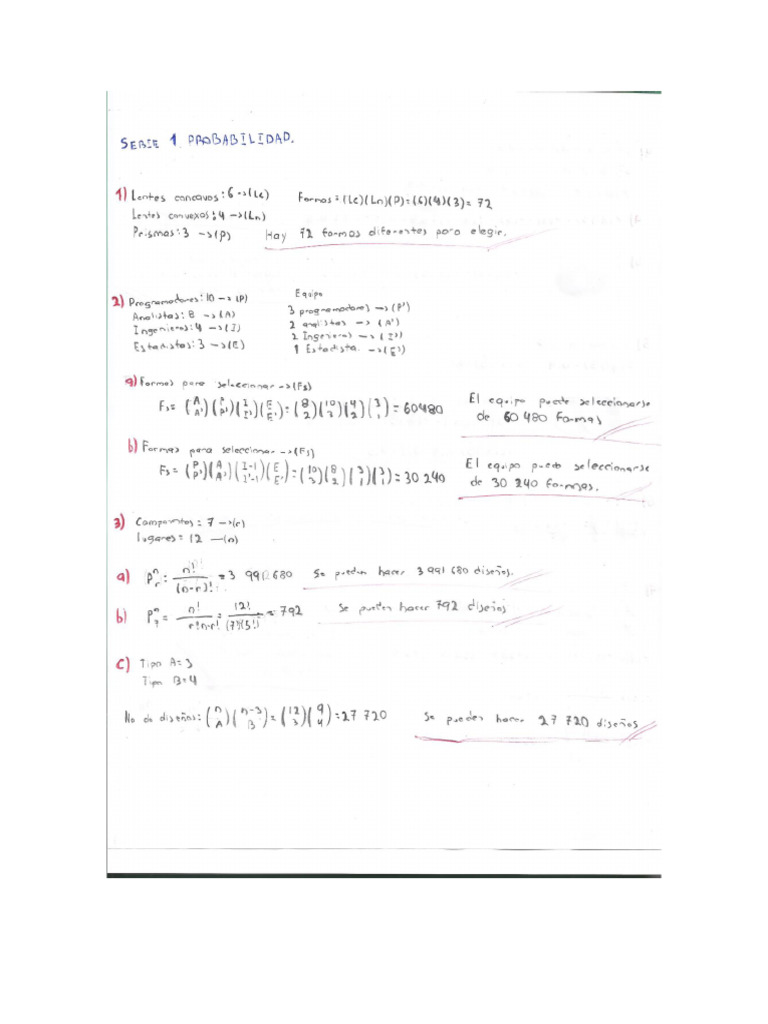 SERIE 1 PROBABILIDAD.
1) Lentes concavos: 6 →(Lc) Formas = (Lc)(Ln)(P) = (6)(4)(3) = 72
Lentes convexos: 4 →(Ln)
Prismas: 3 →(P) Hay 72 formas diferentes para elegir.
2) Programadores: 10 →(P) Equipo
Analistas: 8 →(A) 3 programadores →(P')
Ingenieros: 4 →(I) 2 analistas →(A')
Estadistas: 3 →(E) 2 Ingenieros →(I')
1 Estadista. →(E')
a) Formas para seleccionar →(Fs)
Fs = (A A')(P P')(I I')(E E') = (8 2)(10 3)(4 2)(3 1) = 60480 El equipo puede seleccionarse
de 60 480 formas
b) Formas para seleccionar →(Fs)
Fs = (P P')(A A')(I-1 I'-1)(E E') = (10 3)(8 2)(3 1)(3 1) = 30 240 El equipo puede seleccionarse
de 30 240 formas.
3) Componentes = 7 →(r)
lugares = 12 —(n)
a) P n r = n! / (n-r)! = 3 991 680 Se pueden hacer 3 991 680 diseños.
b) P n 7 = n! / r!n-r! = 12! / (7!)(5!) = 792 Se pueden hacer 792 diseños
C) Tipo A = 3
Tipo B = 4
No de diseños: (n A)(n-3 B) = (12 3)(9 4) = 27 720 Se pueden hacer 27 720 diseños